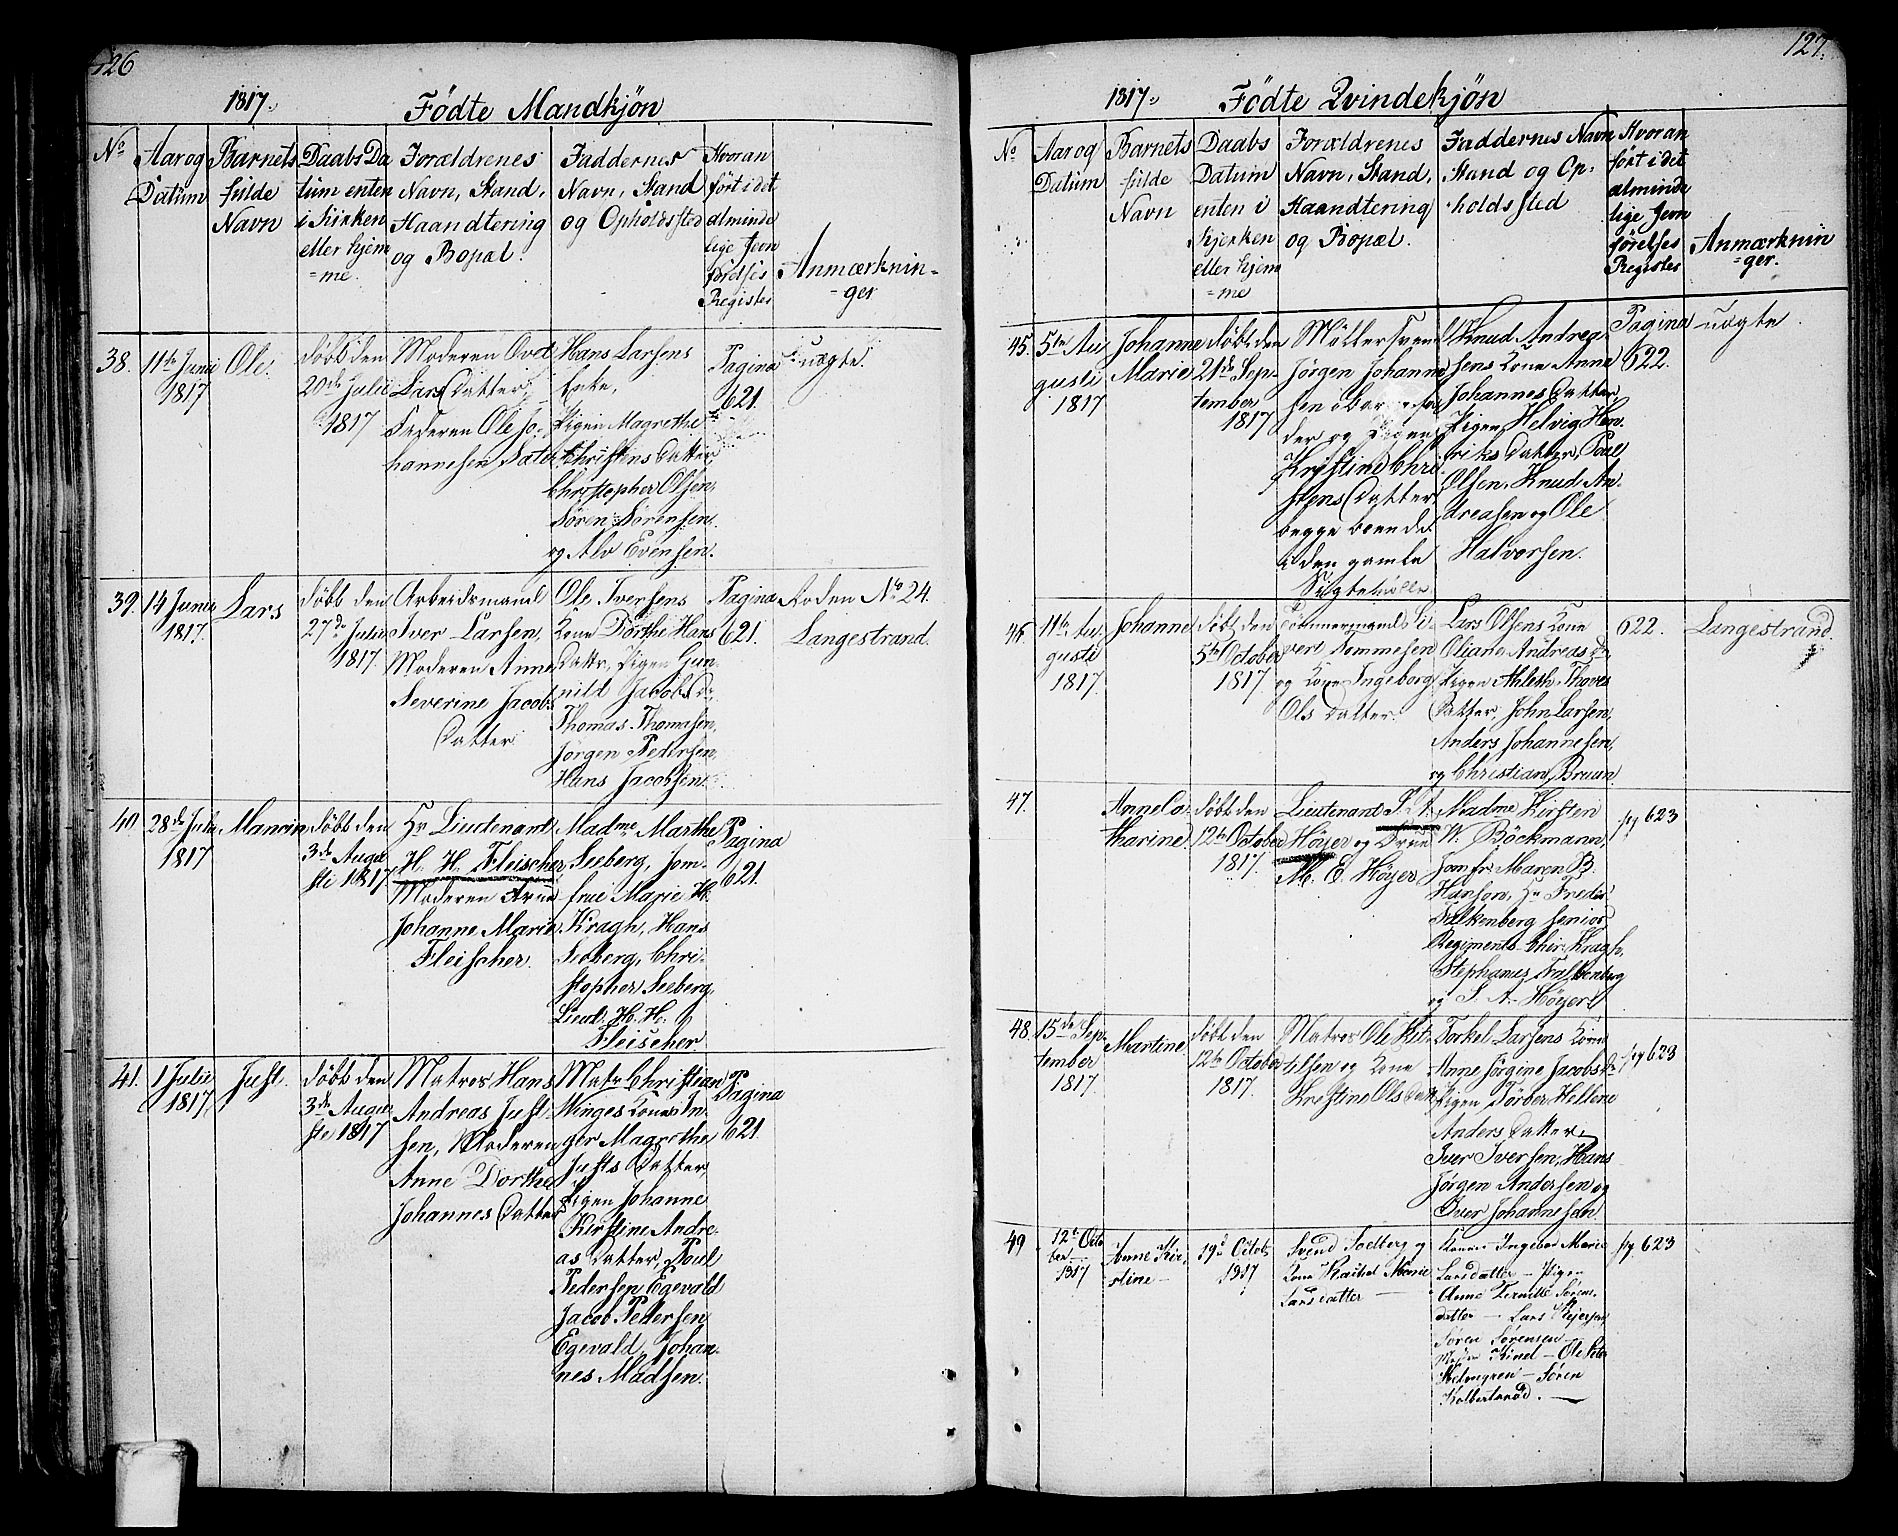 126
1817.
Födte Mandkjön
No
Aar og
Datum
Barnets
fulde
Navn
Daabs Da
tum enten
i Kirken
eller hjem
=me.
Forældrenes
Navn, Stand,
Haandtering
og Bopæl.
Faddernes
Navn, Stand
og Opholdssted
Hvor an
ført i det
alminde
lige Jevn
førelses
Register
Anmærknin=
=ger
38.
11te Junii
1817
Ole.
Döbt den
20de Julii
1817
Moderen
Lars Datter,
Faderen Ole Jo-
hannesen Sater
Hans Larsens
Enke,
Pigen Magrethe
Christens Datter
Christopher Olsen,
Sören Sörensen
og Alv Evensen.
Pagina
621.
uægte.
39.
14 Junii
1817.
Lars
Döbt den
27de Julii
1817.
Arbeidsmand
Iver Larsen,
Moderen Anne
Severine Jacobs
Datter
Ole Iversens
Kone Dorthe Hans
Datter, Pigen Gun
nild Jacobs Dr
Thomas Thomasen,
Jörgen Pedersen,
Hans Jacobsen.
Pagina
621.
Roden No 24.
Langestrand.
40.
28de Julii
1817
Döbt den
3de Augu
sti 1817
Hr Lieutenant
H. H. Fleischer,
Moderen Frue
Johanne Marie
Fleischer.
Madme Marthe
Seeberg, Jom-
frue Marie H.
Kragh, Hans
Seeberg, Chri-
stopher Seeberg,
Lieut. H. H.
Fleischer.
Pagina
621.
41.
1 Julii
1817.
Just.
Döbt den
3de Augu
sti 1817
Matros Hans
Andreas Just-
sen, Moderen
Anne Dorthe
Johannes Datter
Matr Christian
Winges Kone In
ger Magrethe
Justs Datter,
Pigen Johanne
Kirstine Andre-
as Datter, Poul
Pedersen Egevald
Jacob Pedersen
Egevald, Johan-
nes Madsen.
Pagina
621.
127.
1817.
Födte Qvindekjön
No
Aar og
Datum
Barnets
fulde
Navn
Daabs
Datum
enten i
Kirken
eller hjem
=me
Forældrenes
Navn, Stand,
Haandtering
og Bopæl.
Faddernes Navn
Stand og Op-
holdssted
Hvor an
ført i det
alminde
lige Jevn
førelses
Register
Anmærknin
=ger.
45.
5te Au
gusti
1817
Johanne
Marie
Döbt den
21de Sep-
tember
1817
Möllersvend
Jörgen Johanne
sen
og Pigen
Kristine Chri
stens Datter
begge boende
i den gamle
Sigtemölle
Knud Andrea-
sens Kone Anne
Johannes Datter
Pigen Helvig Hen
riks Datter, Poul
Olsen, Knud An
dreasen og Ole
Halvorsen.
Pagina
622.
uægte.
46.
11te Au
gusti
1817.
Johanne
Döbt den
5te October
1817.
Tömmermand Si-
vert Tommesen
og Kone Ingeborg
Ols Datter.
Lars Olsens Kone
Oliane Andreas Dr
Pigen Ahleth Thores
Datter, John Larsen,
Anders Johannesen,
og Christian Bruun
622.
Langestrand.
47.
Anne Ca
tharine
Döbt den
12te October
1817.
Lieutenant S. A.
Höyer og Frue
M. E. Höyer
Madme Kirsten
W. Böckmann,
Jomfr. Maren B.
Hanson, Hr Fredr
Falkenberg senior
Regiments Chir. Kragh,
Stephanus Falkenberg
og S. A. Höyer
pg 623
48.
15de Sep-
tember
1817.
Martine
Döbt den
12te October
1817.
Matros Ole Ket-
tilsen og Kone
Kristine Ols Datt
Torkel Larsens Kone
Anne Jörgine Jacobs Dr
Pigen Törber Hellene
Anders Datter,
Iver Iversen, Hans
Jörgen Andersen og
Iver Johannesen
pg 623
49
12te Octo
ber
1817
Anne Kir-
stine -
19de Octob.
1817
Svend Soelberg og
Kone Rachel Marie
Larsdatter -
Konen Ingebor Marie
Larsdatter - Pigen
Anne Pernille Sörens
datter - Lars
Sören Sörensen -
Kind - Ole
- Sören
pg 623